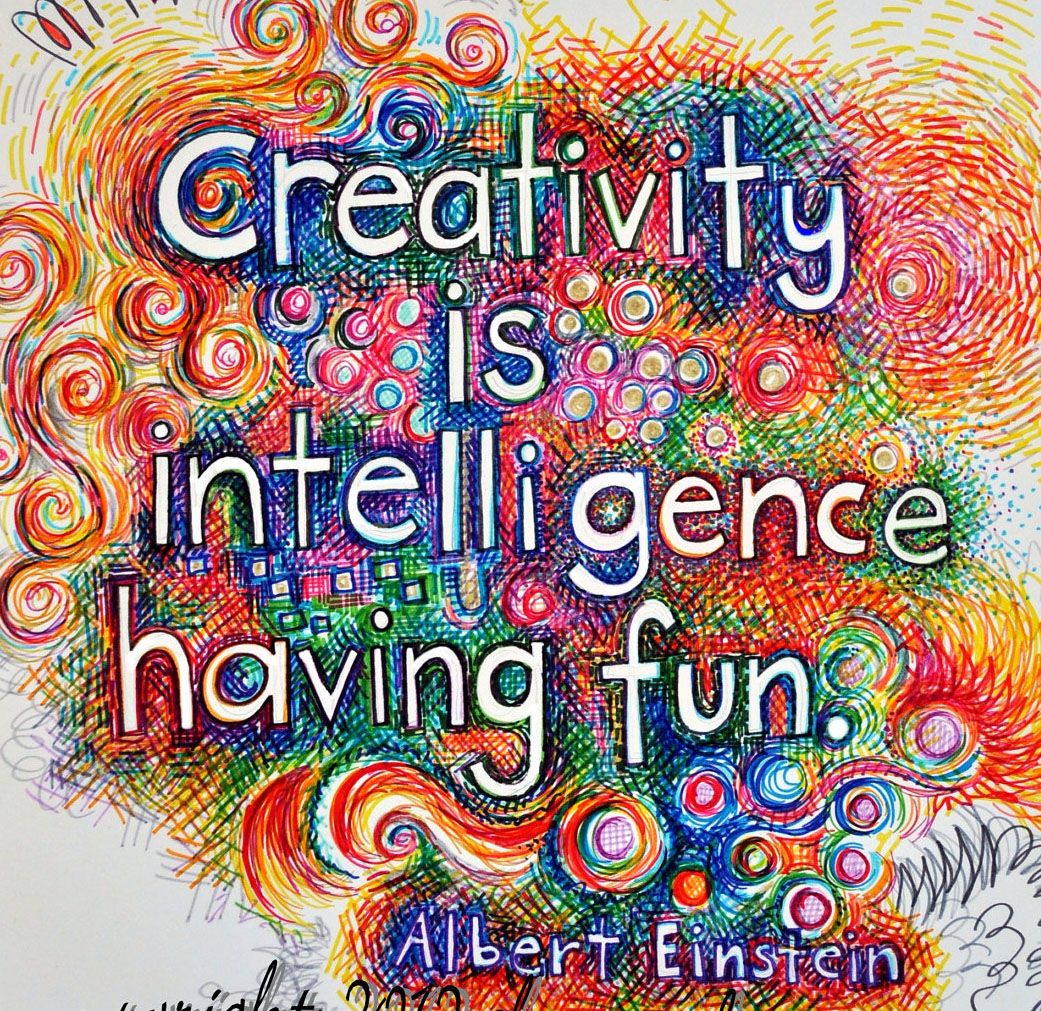 Creativity
is
intelligence
having fun.
Albert Einstein